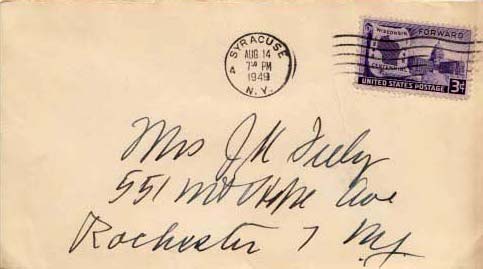 SYRACUSE
AUG 14
7 30 PM
1949
N.Y.
WISCONSIN
FORWARD
CENTENNIAL
UNITED STATES POSTAGE 3¢
Mrs J K Feely
551 Mt Hope Ave
Rochester 7 N.Y.